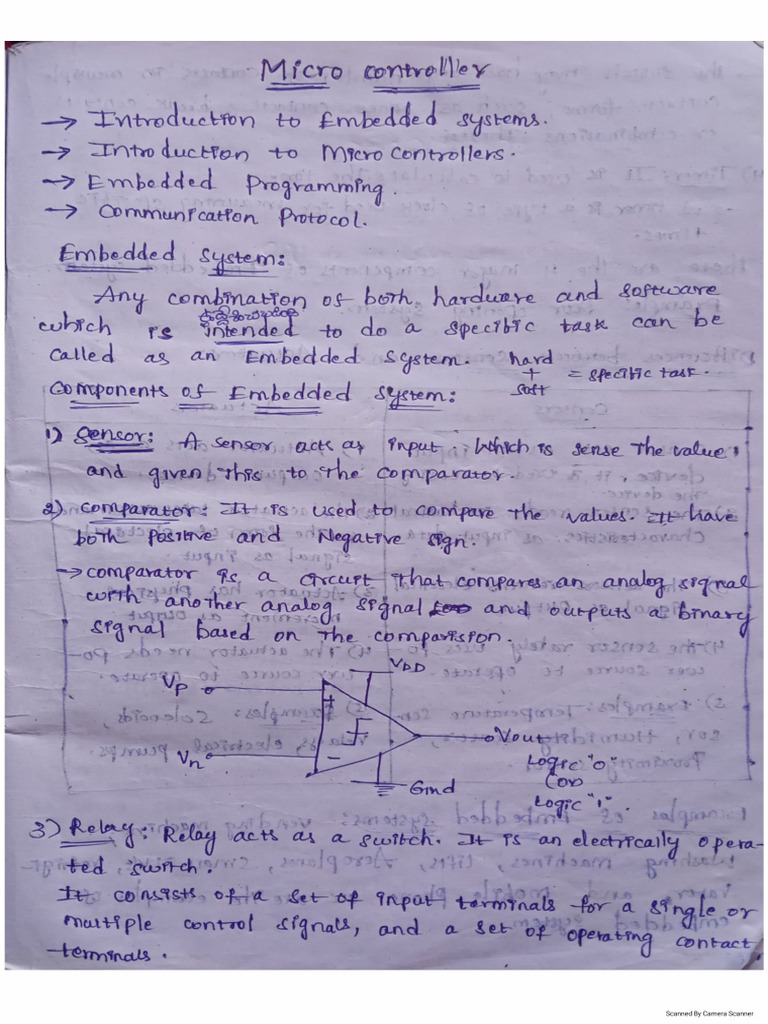 Micro controller
→ Introduction to Embedded systems.
→ Introduction to Micro controllers.
→ Embedded Programming.
→ Communication Protocol.
Embedded System:
Any combination of both hardware and software
which is intended to do a specific task can be
called as an Embedded System. hard + soft = specific task.
Components of Embedded system:
1) Sensor: A sensor acts as input. Which is sense the value
and given this to the comparator.
2) comparator: It is used to compare the values. It have
both Positive and Negative sign.
→ comparator is a circuit that compares an analog signal
with another analog signal and outputs a binary
signal based on the comparision.
VDD
Vp
+
Vn
-
Vout
Logic "0"
(or)
Logic "1".
Gnd
3) Relay: Relay acts as a switch. It is an electrically opera-
ted switch.
It consists of a set of input terminals for a single or
multiple control signals, and a set of operating contact
terminals.
Scanned By Camera Scanner